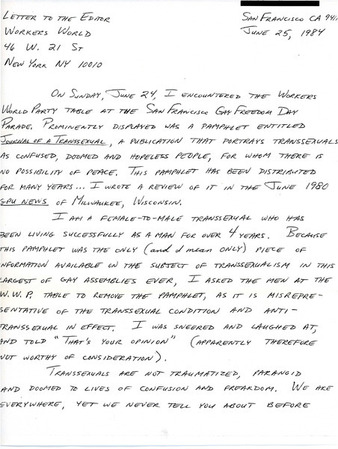 LETTER TO THE EDITOR
SAN FRANCISCO CA
WORKERS WORLD
JUNE 25, 1984
46 W. 21 ST
NEW YORK NY 10010
ON SUNDAY, JUNE 24, I ENCOUNTERED THE WORKERS
WORLD PARTY TABLE AT THE SAN FRANCISCO GAY FREEDOM DAY
PARADE. PROMINENTLY DISPLAYED WAS A PAMPHLET ENTITLED
JOURNAL OF A TRANSEXUAL, A PUBLICATION THAT PORTRAYS TRANSEXUALS
AS CONFUSED, DOOMED AND HOPELESS PEOPLE, FOR WHOM THERE IS
NO POSSIBILITY OF PEACE. THIS PAMPHLET HAS BEEN DISTRIBUTED
FOR MANY YEARS... I WROTE A REVIEW OF IT IN THE JUNE 1980
GPU NEWS OF MILWAUKEE, WISCONSIN.
I AM A FEMALE-TO-MALE TRANSSEXUAL WHO HAS
BEEN LIVING SUCCESSFULLY AS A MAN FOR OVER 4 YEARS. BECAUSE
THIS PAMPHLET WAS THE ONLY (and I mean ONLY) PIECE OF
INFORMATION AVAILABLE ON THE SUBJECT OF TRANSSEXUALISM IN THIS
LARGEST OF GAY ASSEMBLIES EVER, I ASKED THE MEN AT THE
W.W.P. TABLE TO REMOVE THE PAMPHLET, AS IT IS MISREPRE-
SENTATIVE OF THE TRANSEXUAL CONDITION AND ANTI-
TRANSSEXUAL IN EFFECT. I WAS SNEERED AND LAUGHED AT,
AND TOLD "THAT'S YOUR OPINION" (APPARENTLY THEREFORE
NOT WORTHY OF CONSIDERATION).
TRANSSEXUALS ARE NOT TRAUMATIZED, PARANOID
AND DOOMED TO LIVES OF CONFUSION AND FREAKDOM. WE ARE
EVERYWHERE, YET WE NEVER TELL YOU ABOUT BEFORE